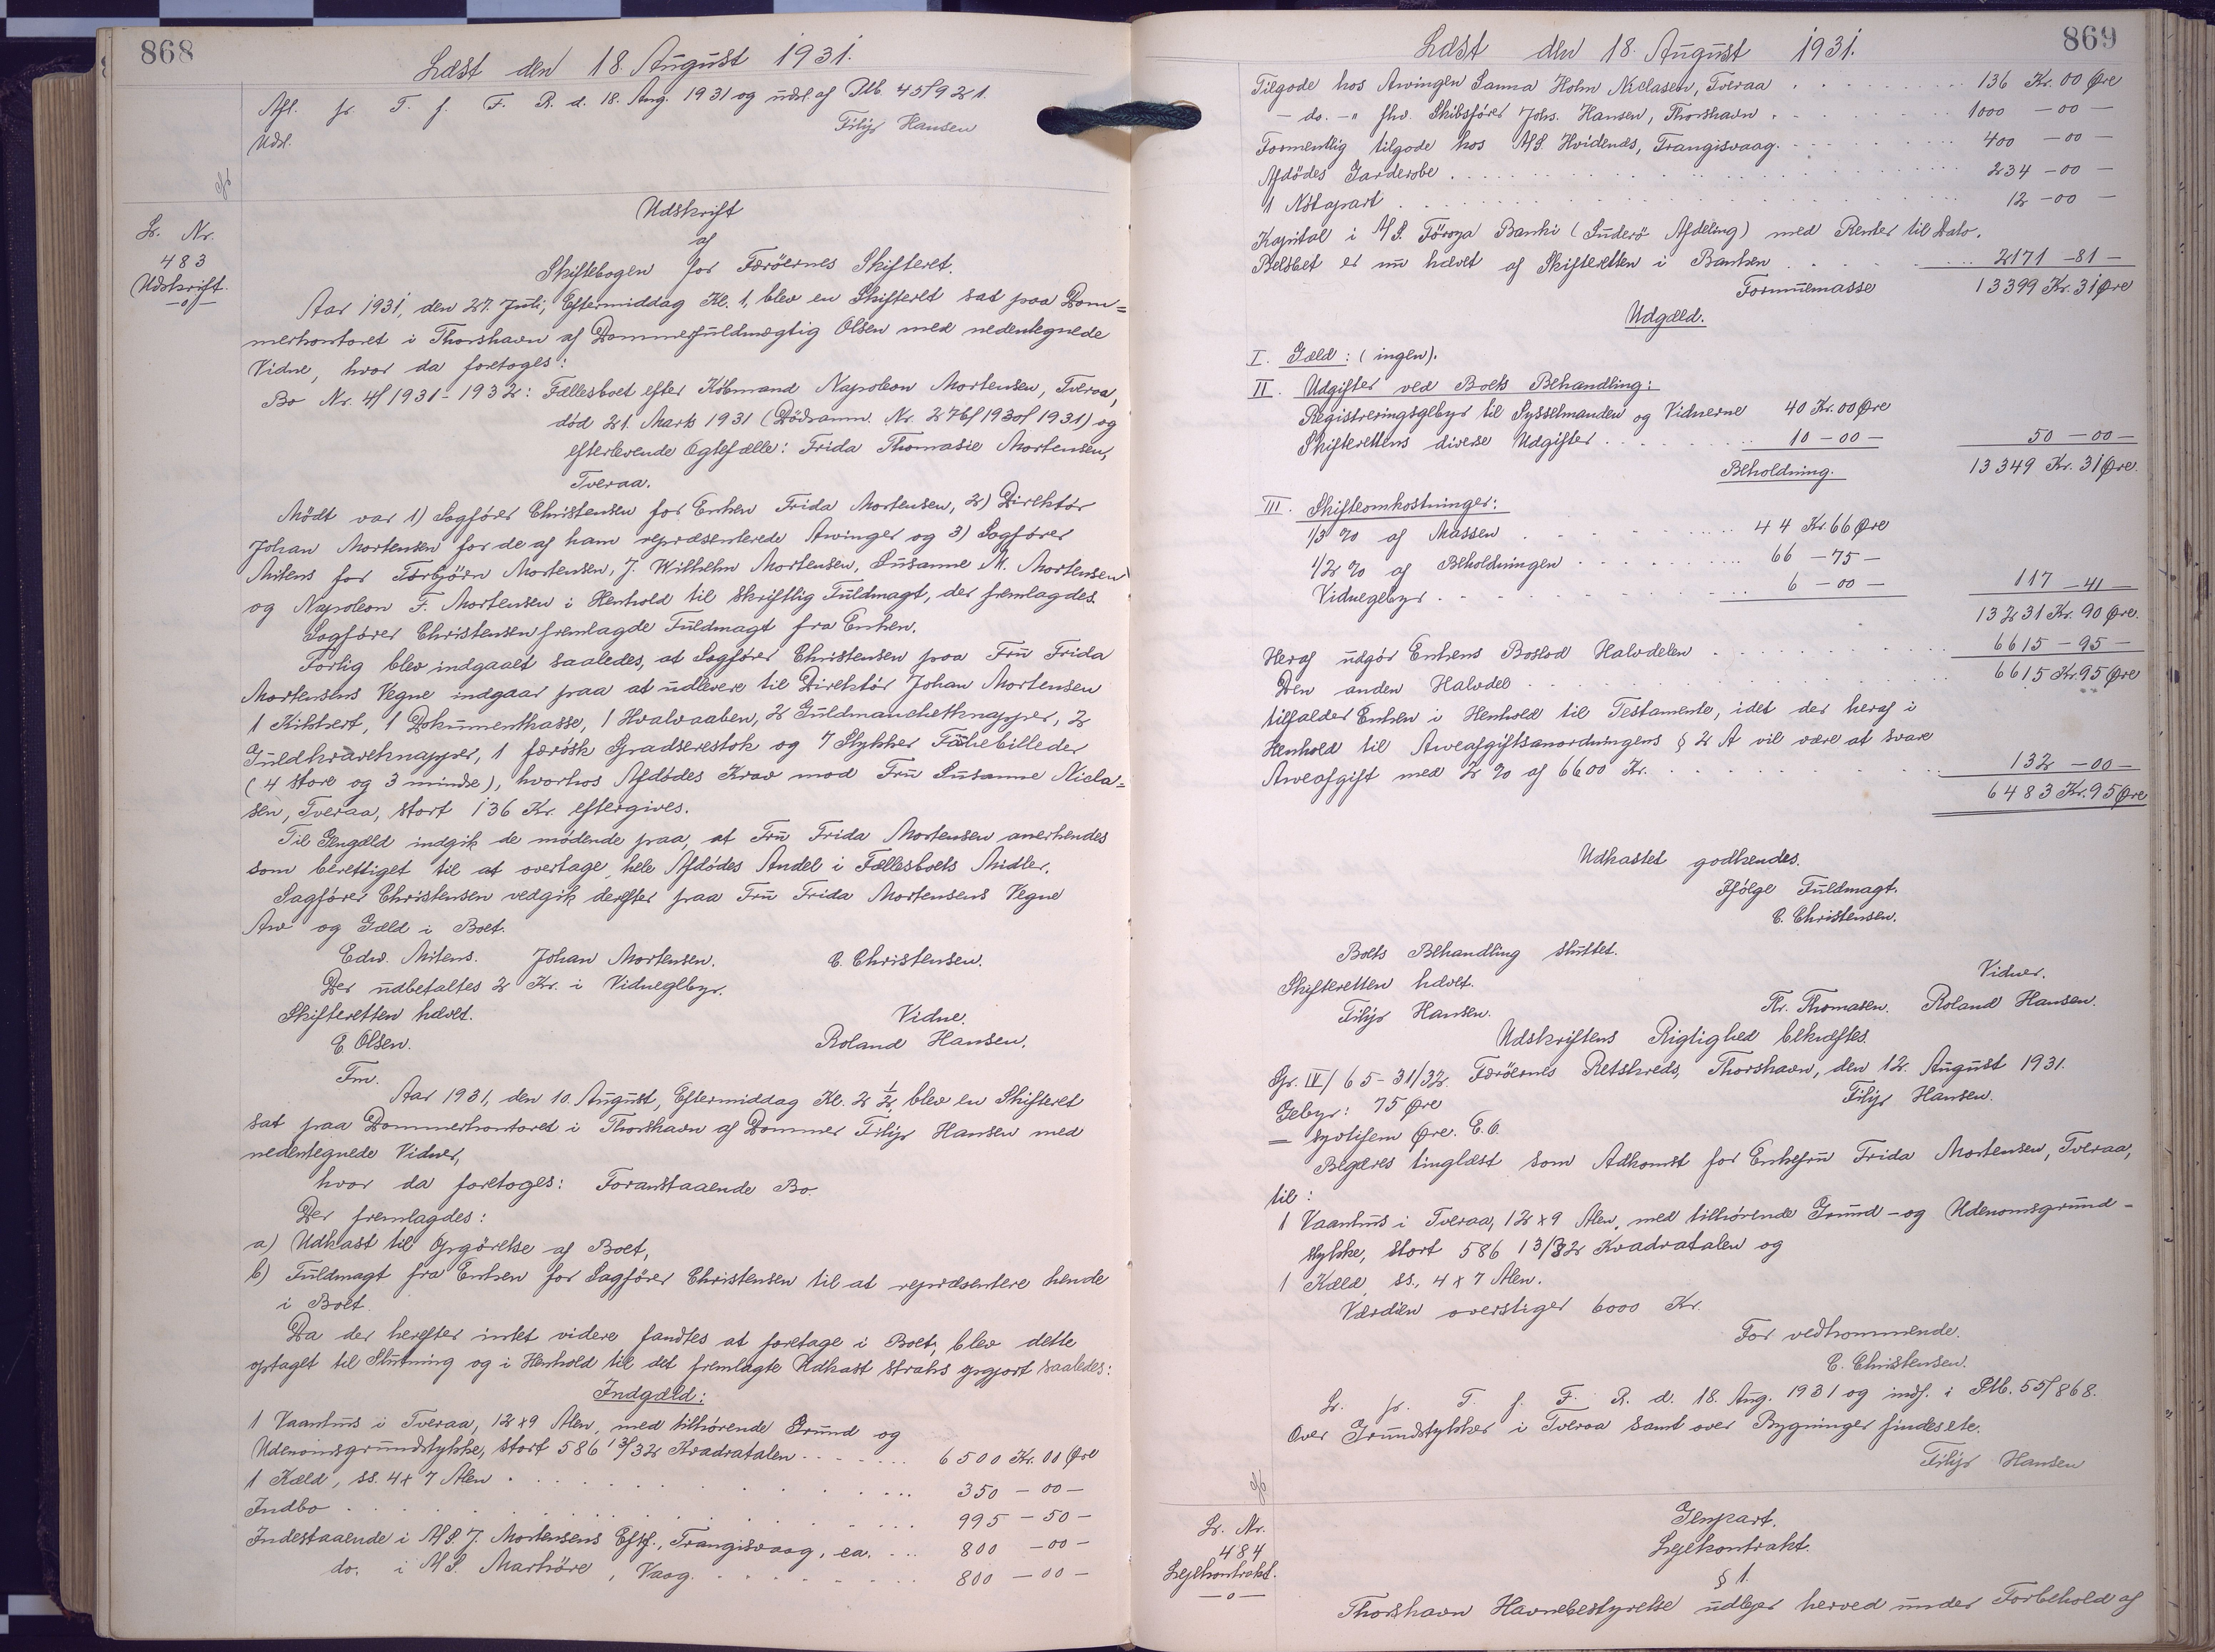 868
Læst den 18. August 1931.
Afl. pr T. f. F. R. d. 18. Aug. 1931 og udsl. af Ptb. 45/921.
Udsl.
Filip Hansen
Lr. Nr.
483
Udskrift.
—o—
Udskrift
af
Skiftebogen for Færöernes Skifteret.
Aar 1931, den 27. Juli, Eftermiddag Kl. 1, blev en Skifteret sat paa Dom=
merkontoret i Thorshavn af Dommerfuldmægtig Olsen med nedentegnede
Vidne, hvor da foretoges:
Bo Nr. 4/1931-1932: Fællesboet efter Købmand Napoleon Mortensen, Tveraa,
død 21. Marts 1931 (Dödsanm. Nr. 276/1930/1931) og
efterlevende Ægtefælle: Frida Thomasie Mortensen,
Tveraa.
Mödt var 1) Sagfører Christensen for Enken Frida Mortensen, 2) Direktør
Johan Mortensen for de af ham repræsenterede Arvinger og 3) Sagfører
Mitens for Torbjörn Mortensen, J. Wilhelm Mortensen, Susanne M. Mortensen
og Napoleon F. Mortensen i Henhold til skriftlig Fuldmagt, der fremlagdes.
Sagfører Christensen fremlagde Fuldmagt fra Enken.
Forlig blev indgaaet saaledes, at Sagfører Christensen paa Fru Frida
Mortensens Vegne indgaar paa at udlevere til Direktör Johan Mortensen
1 Kikkert, 1 Dokumentkasse, 1 Hvalvaaben, 2 Guldmanchetknapper, 2
Guldkraveknapper, 1 færøsk Spadserestok og 7 Stykker Familiebilleder
(4 store og 3 mindre), hvorhos Afdødes Krav mod Fru Susanne Nicla=
sen, Tveraa, stort 136 Kr. eftergives.
Til Gengæld indgik de mødende paa, at Fru Frida Mortensen anerkendes
som berettiget til at overtage hele Afdødes Andel i Fællesboets Midler.
Sagfører Christensen vedgik derefter paa Fru Frida Mortensens Vegne
Arv og Gæld i Boet.
Edw. Mitens. Johan Mortensen. C. Christensen.
Der udbetaltes 2 Kr. i Vidnegebyr.
Skifteretten hævet. Vidne.
E Olsen. Roland Hansen.
Fm.
Aar 1931, den 10. August, Eftermiddag Kl. 2 1/2, blev en Skifteret
sat paa Dommerkontoret i Thorshavn af Dommer Filip Hansen med
nedentegnede Vidner,
hvor da foretoges: Foranstaaende Bo.
Der fremlagdes:
a) Udkast til Opgörelse af Boet,
b) Fuldmagt fra Enken for Sagfører Christensen til at repræsentere hende
i Boet.
Da der herefter intet videre fandtes at foretage i Boet, blev dette
optaget til Slutning og i Henhold til det fremlagte Udkast straks opgjort saaledes:
Indgæld:
1 Vaanhus i Tveraa, 12 x 9 Alen, med tilhørende Grund og
Udenomsgrundstykke, stort 586 13/32 Kvadratalen . . . . . . . 6500 Kr. 00 Øre
1 Kæld, ss. 4 x 7 Alen . . . . . . . 350 - 00 -
Indbo . . . . . . . 995 - 50 -
Indestaaende i A/S. J. Mortensens Eftf., Trangisvaag, ca. . . . 800 - 00 -
do. i A/S. Marhöre, Vaag. . . . . . . 800 - 00 -
869
Læst den 18. August 1931.
Tilgode hos Arvingen Sanna Holm Niclasen, Tveraa . . . . . . . 136 Kr. 00 Øre
- do. -" fhv. Skibsfører Johs. Hansen, Thorshavn . . . . . . . 1000 - 00 -
Formentlig tilgode hos A/S. Hvidenæs, Trangisvaag . . . . . . . 400 - 00 -
Afdödes Garderobe . . . . . . . 234 - 00 -
1 Nótapart . . . . . . . 12 - 00 -
Kapital i A/S. Föroya Banki (Suderö Afdeling) med Renter til Dato.
Beløbet er nu hævet af Skifteretten i Banken . . . . . . . 2171 - 81 -
Formuemasse 13399 Kr. 31 Øre
Udgæld.
I. Gæld: (ingen).
II. Udgifter ved Boets Behandling:
Registreringsgebyr til Sysselmanden og Vidnerne 40 Kr. 00 Øre
Skifterettens diverse Udgifter . . . . . . . 10 - 00 - 50 - 00 -
Beholdning. 13349 Kr. 31 Øre.
III. Skifteomkostninger:
1/3 % af Massen . . . . . . . 44 Kr. 66 Øre
1/2 % af Beholdningen . . . . . . . 66 - 75 -
Vidnegebyr . . . . . . . 6 - 00 - 117 - 41 -
13231 Kr. 90 Øre.
Heraf udgör Enkens Boslod Halvdelen . . . . . . . 6615 - 95 -
Den anden Halvdel . . . . . . . 6615 Kr. 95 Øre
tilfalder Enken i Henhold til Testamente, idet der heraf i
Henhold til Arveafgiftsanordningens § 2 A vil være at svare
Arveafgift med 2 % af 6600 Kr. . . . . . . 132 - 00 -
6483 Kr. 95 Øre
Udkastet godkendes.
Ifølge Fuldmagt.
C. Christensen.
Boets Behandling sluttet.
Skifteretten hævet. Vidner.
Filip Hansen. Kr. Thomasen. Roland Hansen.
Udskriftens Rigtighed bekræftes.
Gr. IV/ 65-31/32. Færöernes Retskreds, Thorshavn, den 12. August 1931.
Gebyr: 75 Øre Filip Hansen.
= syvtifem Øre. E.O.
Begæres tinglæst som Adkomst for Enkefru Frida Mortensen, Tveraa,
til:
1 Vaanhus i Tveraa, 12 x 9 Alen, med tilhörende Grund- og Udenomsgrund-
stykke, stort 586 13/32 Kvadratalen og
1 Kæld, ss., 4 x 7 Alen.
Værdien overstiger 6000 Kr.
For vedkommende.
C. Christensen.
Lr. pr. T. f. F. R. d. 18. Aug. 1931 og indf. i Ptb. 55/868.
Over Grundstykker i Tveraa samt over Bygninger findes etc.
Filip Hansen
Lr. Nr.
484
Lejekontrakt.
—o—
Genpart.
Lejekontrakt.
§ 1.
Thorshavn Havnebestyrelse udlejer herved under Forbehold af